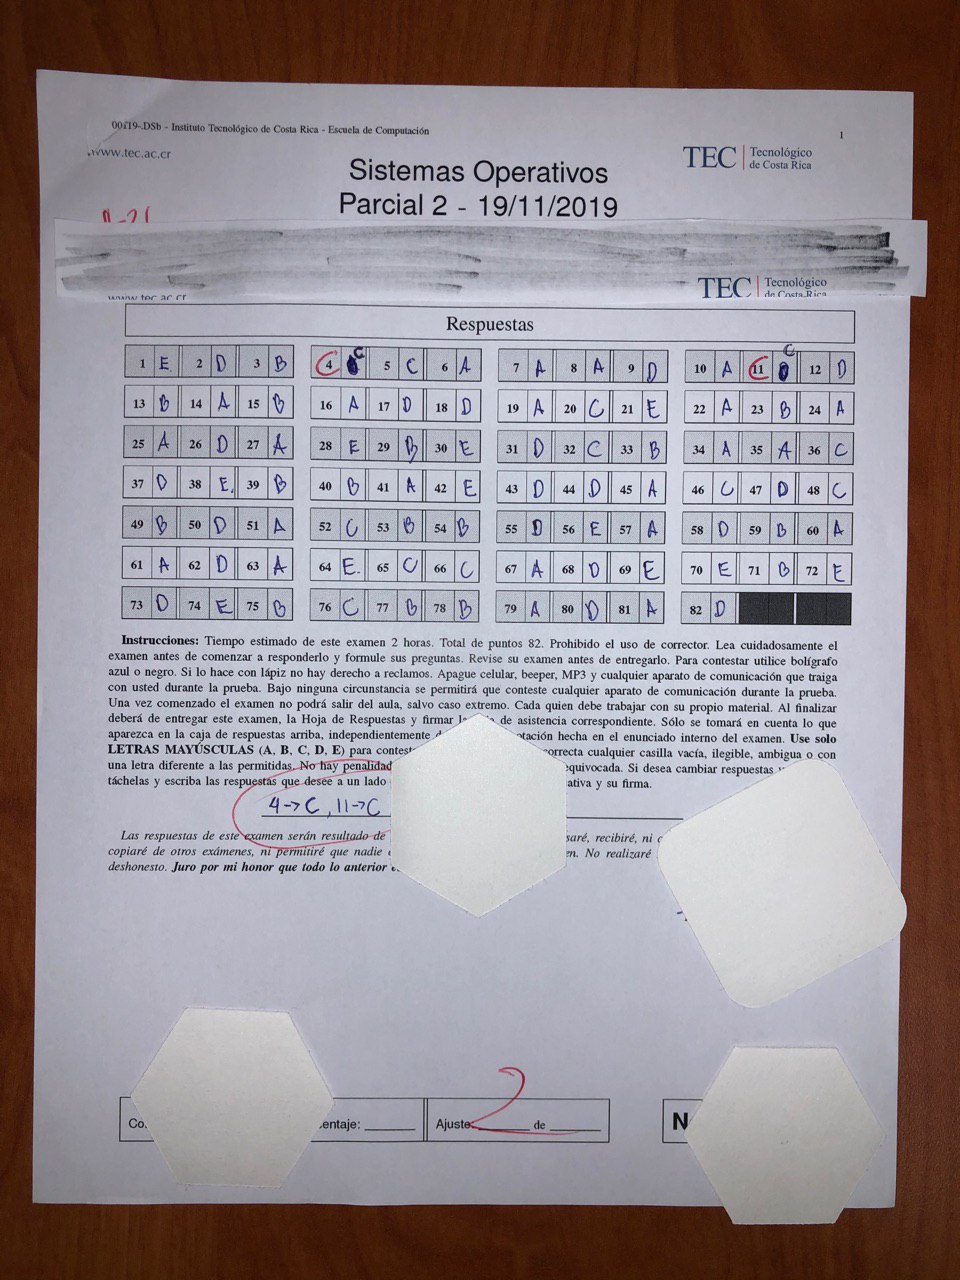 00119-.DSb - Instituto Tecnológico de Costa Rica - Escuela de Computación
1
www.tec.ac.cr
TEC | Tecnológico de Costa Rica
Sistemas Operativos
Parcial 2 - 19/11/2019
TEC | Tecnológico
de Costa Rica
www.tec.ac.cr
Respuestas
1 E 2 D 3 B 4 C 5 C 6 A 7 A 8 A 9 D 10 A 11 C 12 D
13 B 14 A 15 B 16 A 17 D 18 D 19 A 20 C 21 E 22 A 23 B 24 A
25 A 26 D 27 A 28 E 29 B 30 E 31 D 32 C 33 B 34 A 35 A 36 C
37 D 38 E. 39 B 40 B 41 A 42 E 43 D 44 D 45 A 46 C 47 D 48 C
49 B 50 D 51 A 52 C 53 B 54 B 55 D 56 E 57 A 58 D 59 B 60 A
61 A 62 D 63 A 64 E. 65 C 66 C 67 A 68 D 69 E 70 E 71 B 72 E
73 D 74 E 75 B 76 C 77 B 78 B 79 A 80 D 81 A 82 D
Instrucciones: Tiempo estimado de este examen 2 horas. Total de puntos 82. Prohibido el uso de corrector. Lea cuidadosamente el
examen antes de comenzar a responderlo y formule sus preguntas. Revise su examen antes de entregarlo. Para contestar utilice bolígrafo
azul o negro. Si lo hace con lápiz no hay derecho a reclamos. Apague celular, beeper, MP3 y cualquier aparato de comunicación que traiga
con usted durante la prueba. Bajo ninguna circunstancia se permitirá que conteste cualquier aparato de comunicación durante la prueba.
Una vez comenzado el examen no podrá salir del aula, salvo caso extremo. Cada quien debe trabajar con su propio material. Al finalizar
deberá de entregar este examen, la Hoja de Respuestas y firmar de asistencia correspondiente. Sólo se tomará en cuenta lo que
aparezca en la caja de respuestas arriba, independientemente hecha en el enunciado interno del examen. Use solo
LETRAS MAYÚSCULAS (A, B, C, D, E) para cualquier casilla vacía, ilegible, ambigua o con
una letra diferente a las permitidas. No hay equivocada. Si desea cambiar respuestas
táchelas y escriba las respuestas que desee a un lado y su firma.
4→C, 11→C
Las respuestas de este examen serán resultado de recibiré, ni
copiaré de otros exámenes, ni permitiré que nadie No realizaré
deshonesto. Juro por mi honor que todo lo anterior
Ajuste: 2 de